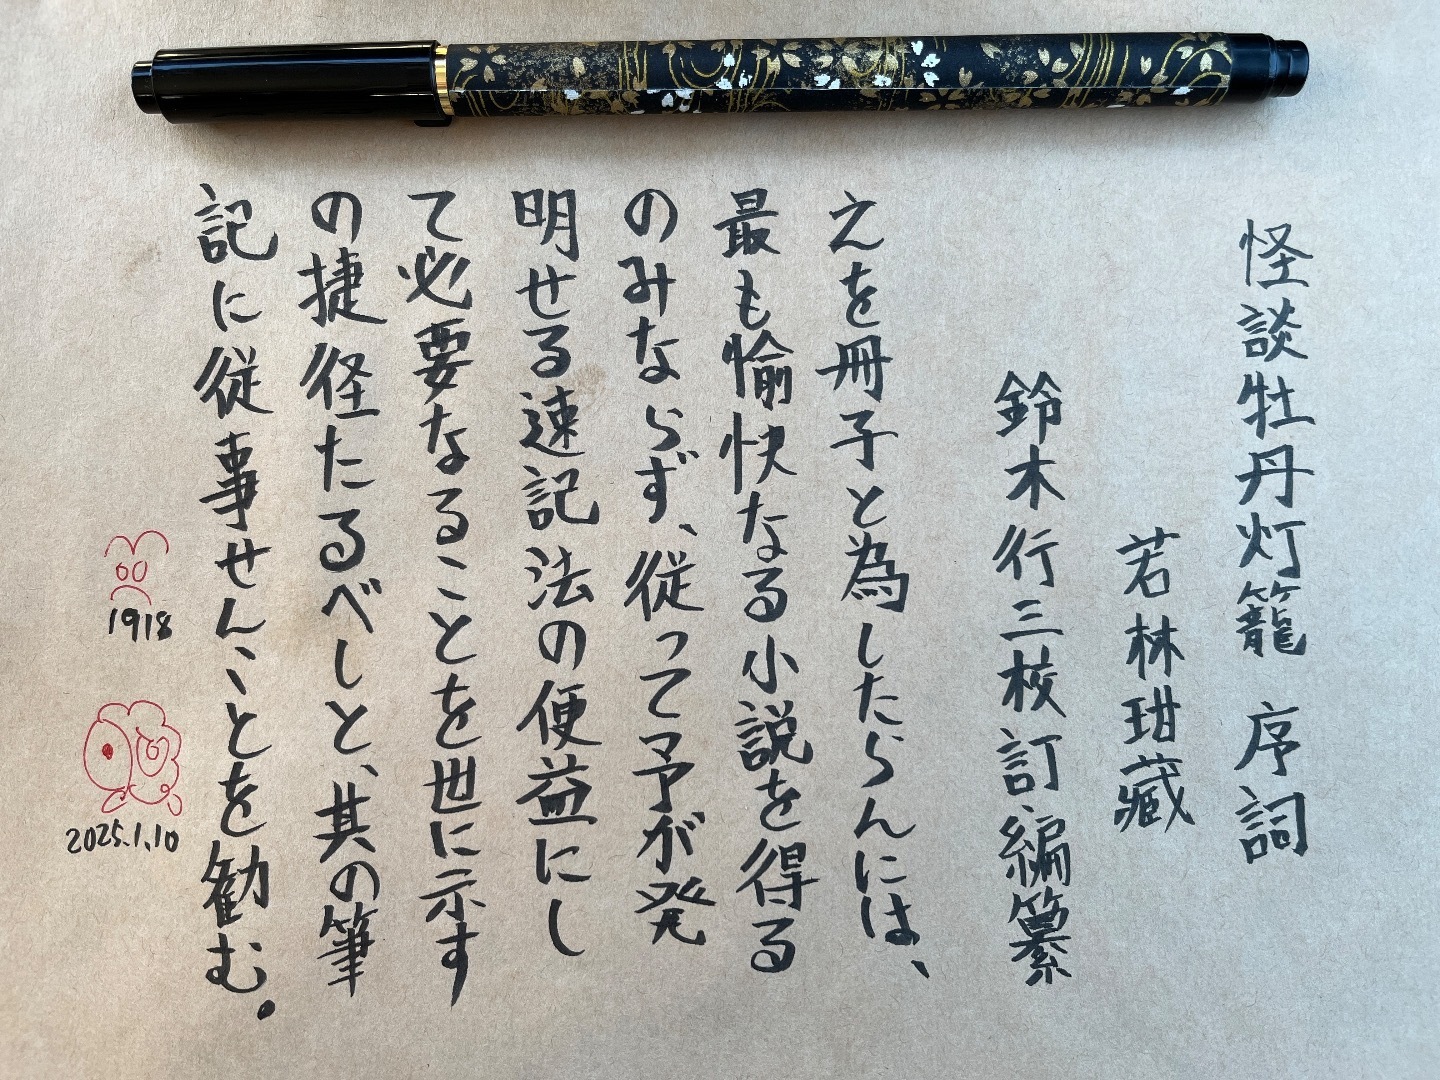 怪談牡丹灯籠 序詞
若林玵藏
鈴木行三校訂・編纂
えを冊子と為したらんには、
最も愉快なる小説を得る
のみならず、従って予が発
明せる速記法の便益にし
て必要なることを世に示す
の捷径たるべしと、其の筆
記に従事せんことを勧む。
1918
2025.1.10